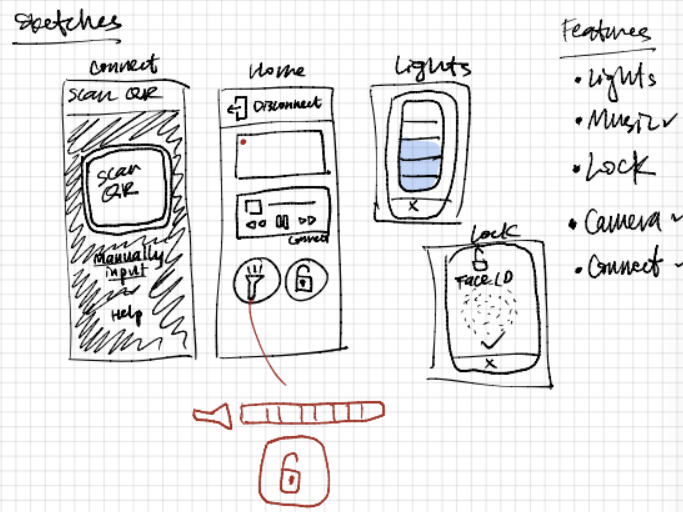 Sketches
Connect
Scan QR
Scan
QR
Manually
input
Help
Home
Disconnect
Connect
Lights
X
Lock
Face ID
X
Features
• Lights
• Music ✓
• Lock
• Camera ✓
• Connect ✓